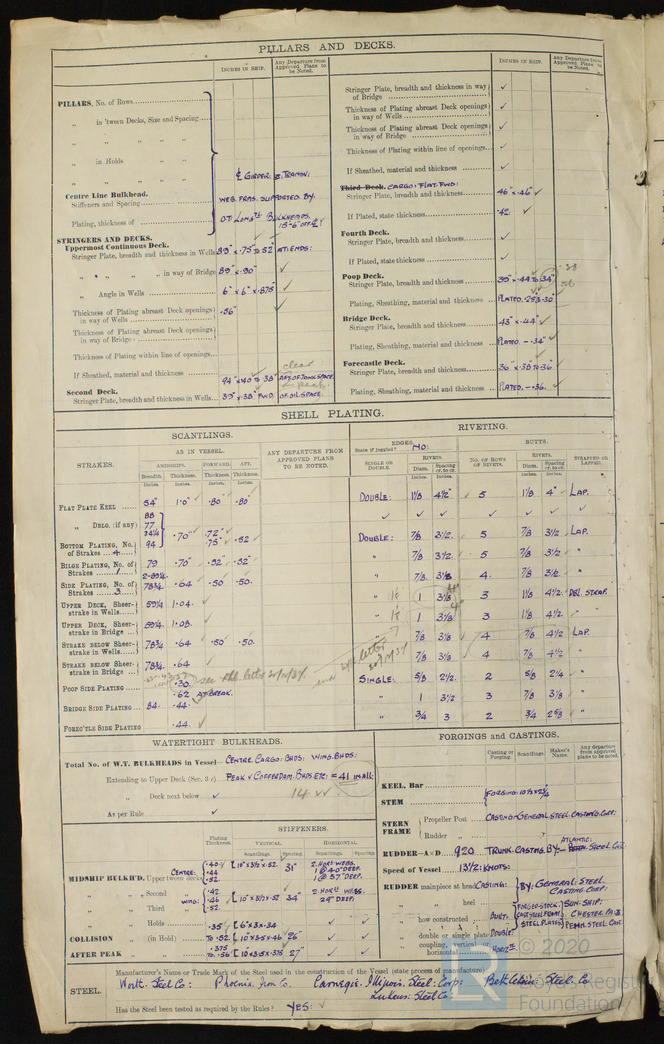 PILLARS AND DECKS.
INCHES IN SHIP.
Any Departure from Approved Plans to be Noted.
PILLARS, No. of Rows
„ in 'tween Decks, Size and Spacing
„ „ „ „
„ in Holds „ „
„ „ „ „
℄ GIRDER: & TRANSV:
Centre Line Bulkhead.
Stiffeners and Spacing
WEB FRMS. SUPPORTED BY.
Plating, thickness of
O.T. LONGL BULKHEADS.
15'-6" OFF ℄
STRINGERS AND DECKS.
Uppermost Continuous Deck.
Stringer Plate, breadth and thickness in Wells 89" x .75 TO 52" AT ENDS:
„ „ „ „ in way of Bridge 89" x .90" ✓
„ Angle in Wells 6" x 6" x .875" ✓
Thickness of Plating abreast Deck openings in way of Wells .56" ✓
Thickness of Plating abreast Deck openings in way of Bridge
Thickness of Plating within line of openings
If Sheathed, material and thickness
clear
94" x .40 TO 38" AFT. OF TANK SPACE.
Second Deck.
Stringer Plate, breadth and thickness in Wells 39" x 38" FWD OF OIL SPACE.
INCHES IN SHIP.
Any Departure from Approved Plans to be Noted.
Stringer Plate, breadth and thickness in way of Bridge ✓
Thickness of Plating abreast Deck openings in way of Wells ✓
Thickness of Plating abreast Deck openings in way of Bridge ✓
Thickness of Plating within line of openings ✓
If Sheathed, material and thickness ✓
Third Deck. CARGO: FLAT: FWD:
Stringer Plate, breadth and thickness 46" x .46" ✓
If Plated, state thickness .42 ✓
Fourth Deck.
Stringer Plate, breadth and thickness ✓
If Plated, state thickness ✓
Poop Deck.
Stringer Plate, breadth and thickness 39" x .44 TO 34"
Plating, Sheathing, material and thickness PLATED.
Bridge Deck.
Stringer Plate, breadth and thickness 43" x .44" ✓
Plating, Sheathing, material and thickness PLATED. - .34" ✓
Forecastle Deck.
Stringer Plate, breadth and thickness 36" x .38 TO 36" ✓
Plating, Sheathing, material and thickness PLATED. - .36. ✓
SHELL PLATING.
SCANTLINGS.
RIVETING.
STRAKES.
AS IN VESSEL.
AMIDSHIPS. FORWARD. AFT.
Breadth. Thickness. Thickness. Thickness.
Inches. Inches. Inches. Inches.
ANY DEPARTURE FROM APPROVED PLANS TO BE NOTED.
EDGES. State if joggled? NO:
BUTTS.
SINGLE OR DOUBLE.
RIVETS.
Diam. Spacing cr. to cr.
NO. OF ROWS OF RIVETS.
RIVETS.
Diam. Spacing cr. to cr.
STRAPPED OR LAPPED.
Inches. Inches. Inches. Inches.
FLAT PLATE KEEL 54" 1.0" ✓ .80" ✓ .80" DOUBLE: 1 1/8 4 1/2" ✓ 5 1 1/8 4" ✓ LAP.
„ DBLG. (if any) ✓ ✓ ✓ ✓ ✓ ✓ ✓
88
77
BOTTOM PLATING, No. of Strakes 4 94 .70" ✓ .72" .75" .52 DOUBLE: 7/8 3 1/2. 5 7/8 3 1/2 LAP.
BILGE PLATING, No. of Strakes 1 79 .70" .52" .52" „ 7/8 3 1/2. 5 7/8 3 1/2 „
SIDE PLATING, No. of Strakes 3 78 3/4 .64 .50 .50. „ 7/8 3 1/8 4. 7/8 3 1/2 „
UPPER DECK, Sheerstrake in Wells 59 1/4 1.04. „ 1 3 1/8 3 1 1/8 4 1/2. DBL STRAP.
UPPER DECK, Sheerstrake in Bridge 59 1/4. 1.08. „ 1 3 1/8 3 1 1/8 4 1/2. „
STRAKE BELOW Sheerstrake in Wells 78 3/4 .64 .50 .50. „ 7/8 3 1/8 4 7/8 4 1/2 LAP.
STRAKE BELOW Sheerstrake in Bridge 78 3/4. .64 „ 7/8 3 1/8 4 7/8 4 1/2 „
POOP SIDE PLATING .30. SINGLE: 5/8 2 1/2. 2 5/8 2 1/4 „
see letter
.62 AT BREAK.
BRIDGE SIDE PLATING 84. .44. „ 1 3 1/2 3 7/8 3 1/8 „
FOREC'TLE SIDE PLATING .44. ✓ „ 3/4 3 2 3/4 2 5/8 „
WATERTIGHT BULKHEADS.
Total No. of W.T. BULKHEADS in Vessel CENTRE. CARGO: BHDS: WING. BHDS:
Extending to Upper Deck (Sec. 3 c) PEAK & COFFERDAM. BHDS ETC: = 41 IN ALL:
„ Deck next below ✓ 14 ✓✓
As per Rule ✓
Plating Thickness
STIFFENERS.
VERTICAL HORIZONTAL
Scantlings. Spacing. Scantlings. Spacing.
MIDSHIP BULKH'D, Upper 'tween decks CENTRE: .40 .44 .52 [ 10" x 3 1/2 x .52. 31" 2. HORL WEBS. 1 @ 40" DEEP. 1 @ 57" DEEP.
„ „ Second „ .42
WING: .46 [ 10" x 3 1/2 x 52 34" 2 HORL WEBS. 29" DEEP.
„ „ Third „ .52.
„ „ Holds .35 [ 6" x 3 x .34 ✓ ✓
COLLISION „ (in Hold) TO .52. [ 10" x 3.5 x .46 26" ✓ ✓
AFTER PEAK „ „ .375 TO .56 [ 10 x 3.5 x .375 27" ✓ ✓
FORGINGS and CASTINGS.
Casting or Forging. Scantlings. Maker's Name. Any departure from approved plans to be noted.
KEEL, Bar
STEM { FORGING: 10 1/2 x 2 3/4
STERN FRAME { Propeller Post CASTING: GENERAL STEEL CASTING CORP:
Rudder „ ✓ ✓
RUDDER—A x D 920 TRUNK. CASTING. BY: - ATLANTIC: STEEL. CO.
Speed of Vessel 13 1/2: KNOTS:
RUDDER mainpiece at head CASTING: { BY: GENERAL: STEEL. CASTING CORP:
„ „ heel
„ how constructed BUILT. { FORGED STOCK: CAST STEEL FRAME STEEL PLATES } SUN: SHIP: CHESTER PA: & PENN. STEEL. CO.
„ double or single plate DOUBLE:
„ coupling, vertical or horizontal HORIZTL
STEEL.
Manufacturer's Name or Trade Mark of the Steel used in the construction of the Vessel (state process of manufacture)
Worth. Steel Co: Phoenix. Iron Co. Carnegie. Illinois. Steel: Corp: Bethlehem Steel. Co
Lukens: Steel Co:
Has the Steel been tested as required by the Rules? YES: ✓
LR © 2020
Lloyd's Register Foundation